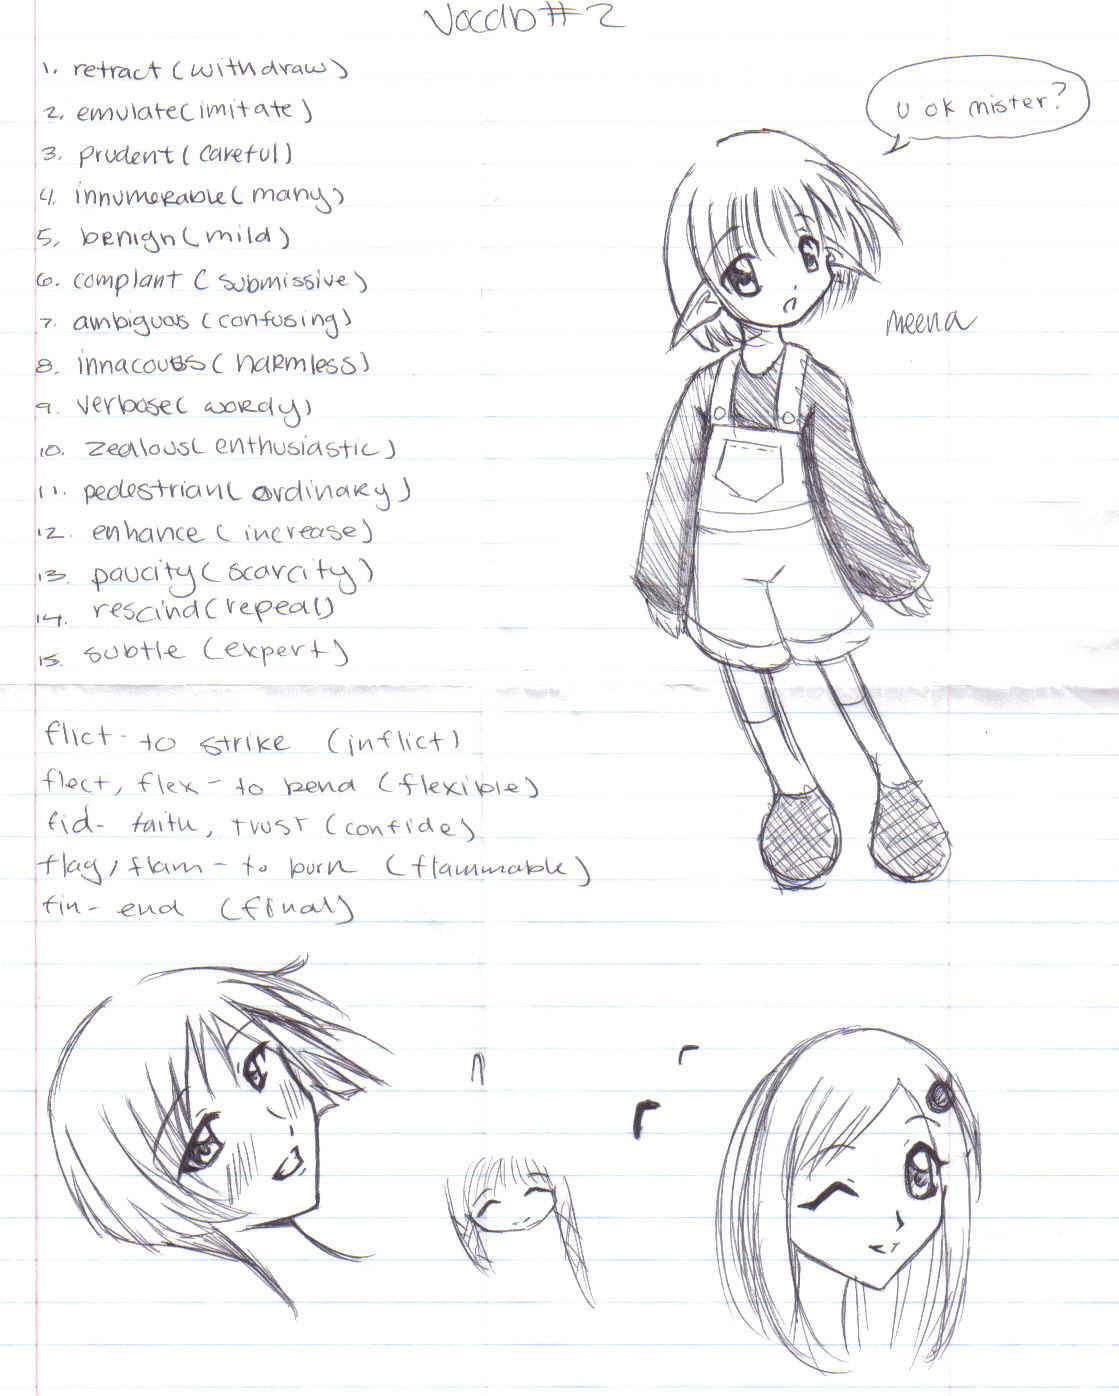 Vocab #2
1. retract (withdraw)
2. emulate (imitate)
3. prudent (careful)
4. innumerable (many)
5. benign (mild)
6. complant (submissive)
7. ambiguos (confusing)
8. innacouss (harmless)
9. verbose (wordy)
10. zealous (enthusiastic)
11. pedestrian (ordinary)
12. enhance (increase)
13. paucity (scarcity)
14. rescind (repeal)
15. subtle (expert)
flict - to strike (inflict)
flect, flex - to bend (flexible)
fid - faith, trust (confide)
flag, flam - to burn (flammable)
fin - end (final)
u ok mister?
meena